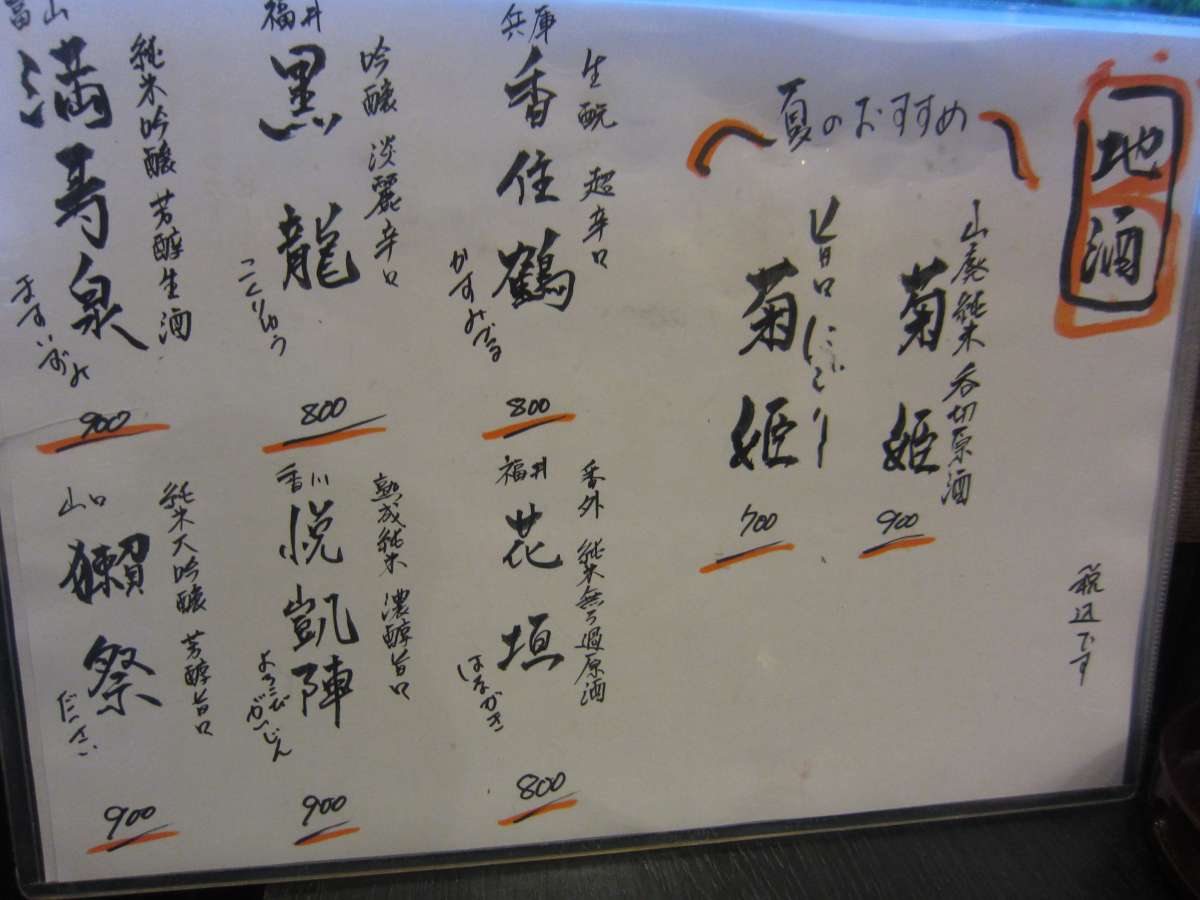 地酒
夏のおすすめ
山廃純米 呑切原酒
菊姫
900
旨口にごり
菊姫
700
税込です
兵庫
生酛 超辛口
香住鶴
かすみづる
800
福井
吟醸 淡麗辛口
黒龍
こくりゅう
800
富山
純米吟醸 芳醇生酒
満寿泉
ますいずみ
900
福井
番外 純米無ろ過原酒
花垣
はながき
800
香川
熟成純米 濃醇旨口
悦凱陣
よろこびがいじん
900
山口
純米大吟醸 芳醇旨口
獺祭
だっさい
900